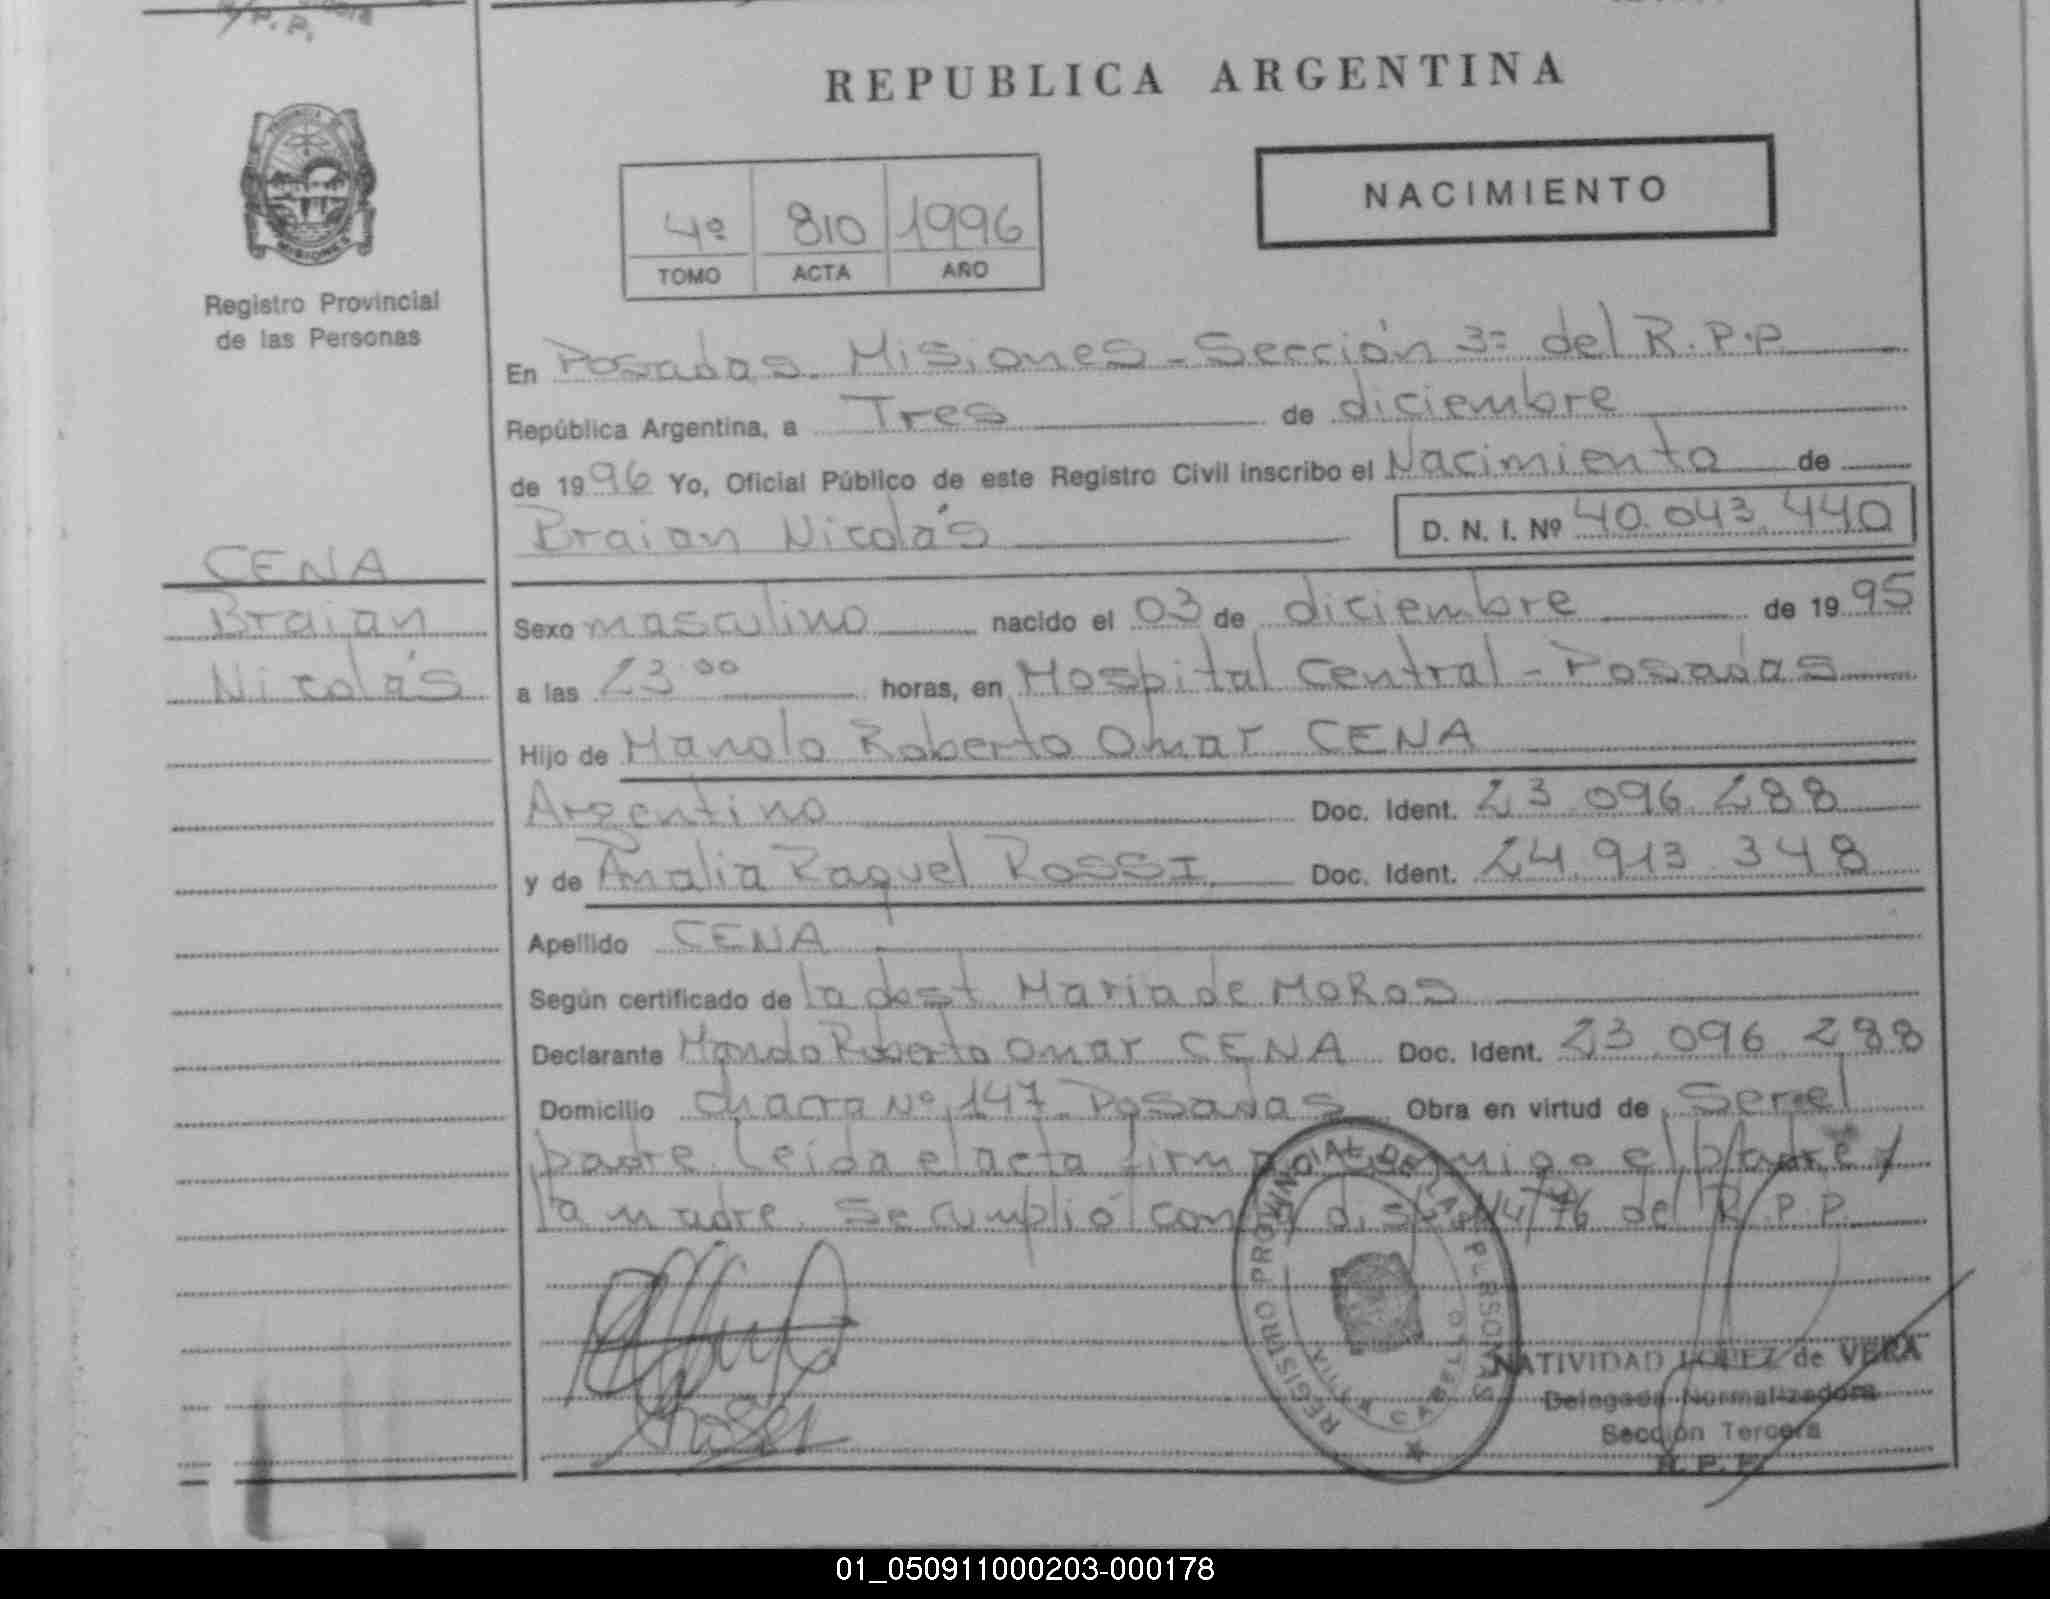 REPUBLICA ARGENTINA
NACIMIENTO
4º 810 1996
TOMO ACTA AÑO
MISIONES
Registro Provincial
de las Personas
En Posadas. Misiones - Sección 3= del R.P.P
República Argentina, a Tres de diciembre
de 1996 Yo, Oficial Público de este Registro Civil inscribo el Nacimiento de
Braian Nicolás D. N. I. Nº 40.043.440
CENA
Braian
Nicolás
Sexo masculino nacido el 03 de diciembre de 1995
a las 23 00 horas, en Hospital Central - Posadas
Hijo de Manolo Roberto Omar CENA
Argentino Doc. Ident. 23.096.288
y de Analia Raquel ROSSI Doc. Ident. 24.913.348
Apellido CENA
Según certificado de la María de
Declarante Roberto Omar CENA Doc. Ident. 23.096.288
Domicilio chacra Nº 147 Posadas Obra en virtud de Ser el
padre. Leída el acta el padre y
la madre. Se cumplió con del R.P.P.
REGISTRO PROVINCIAL DE LAS PERSONAS
NATIVIDAD LOPEZ de VERA
Delegada Normalizadora
Sección Tercera
R. P. P.
01_050911000203-000178